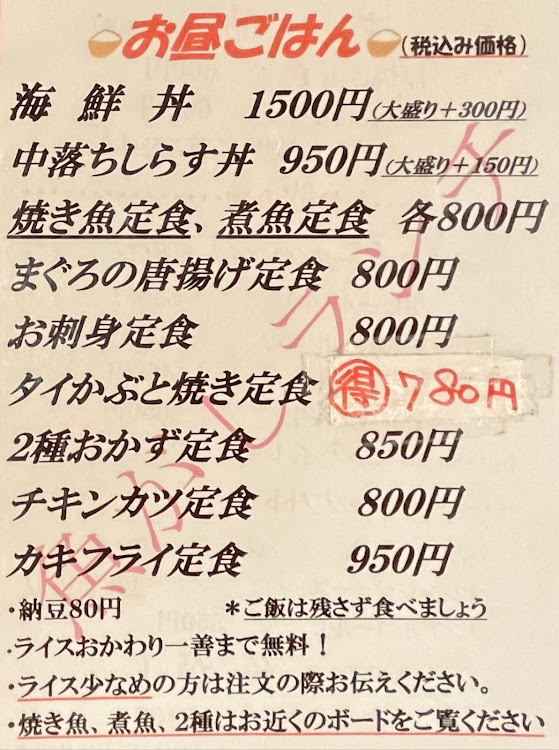 お昼ごはん (税込み価格)
海鮮丼 1500円(大盛り+300円)
中落ちしらす丼 950円(大盛り+150円)
焼き魚定食、煮魚定食 各800円
まぐろの唐揚げ定食 800円
お刺身定食 800円
タイかぶと焼き定食 ㊕得 780円
2種おかず定食 850円
チキンカツ定食 800円
カキフライ定食 950円
・納豆80円 *ご飯は残さず食べましょう
・ライスおかわり一善まで無料！
・ライス少なめの方は注文の際お伝えください。
・焼き魚、煮魚、2種はお近くのボードをご覧ください
魚がしランチ